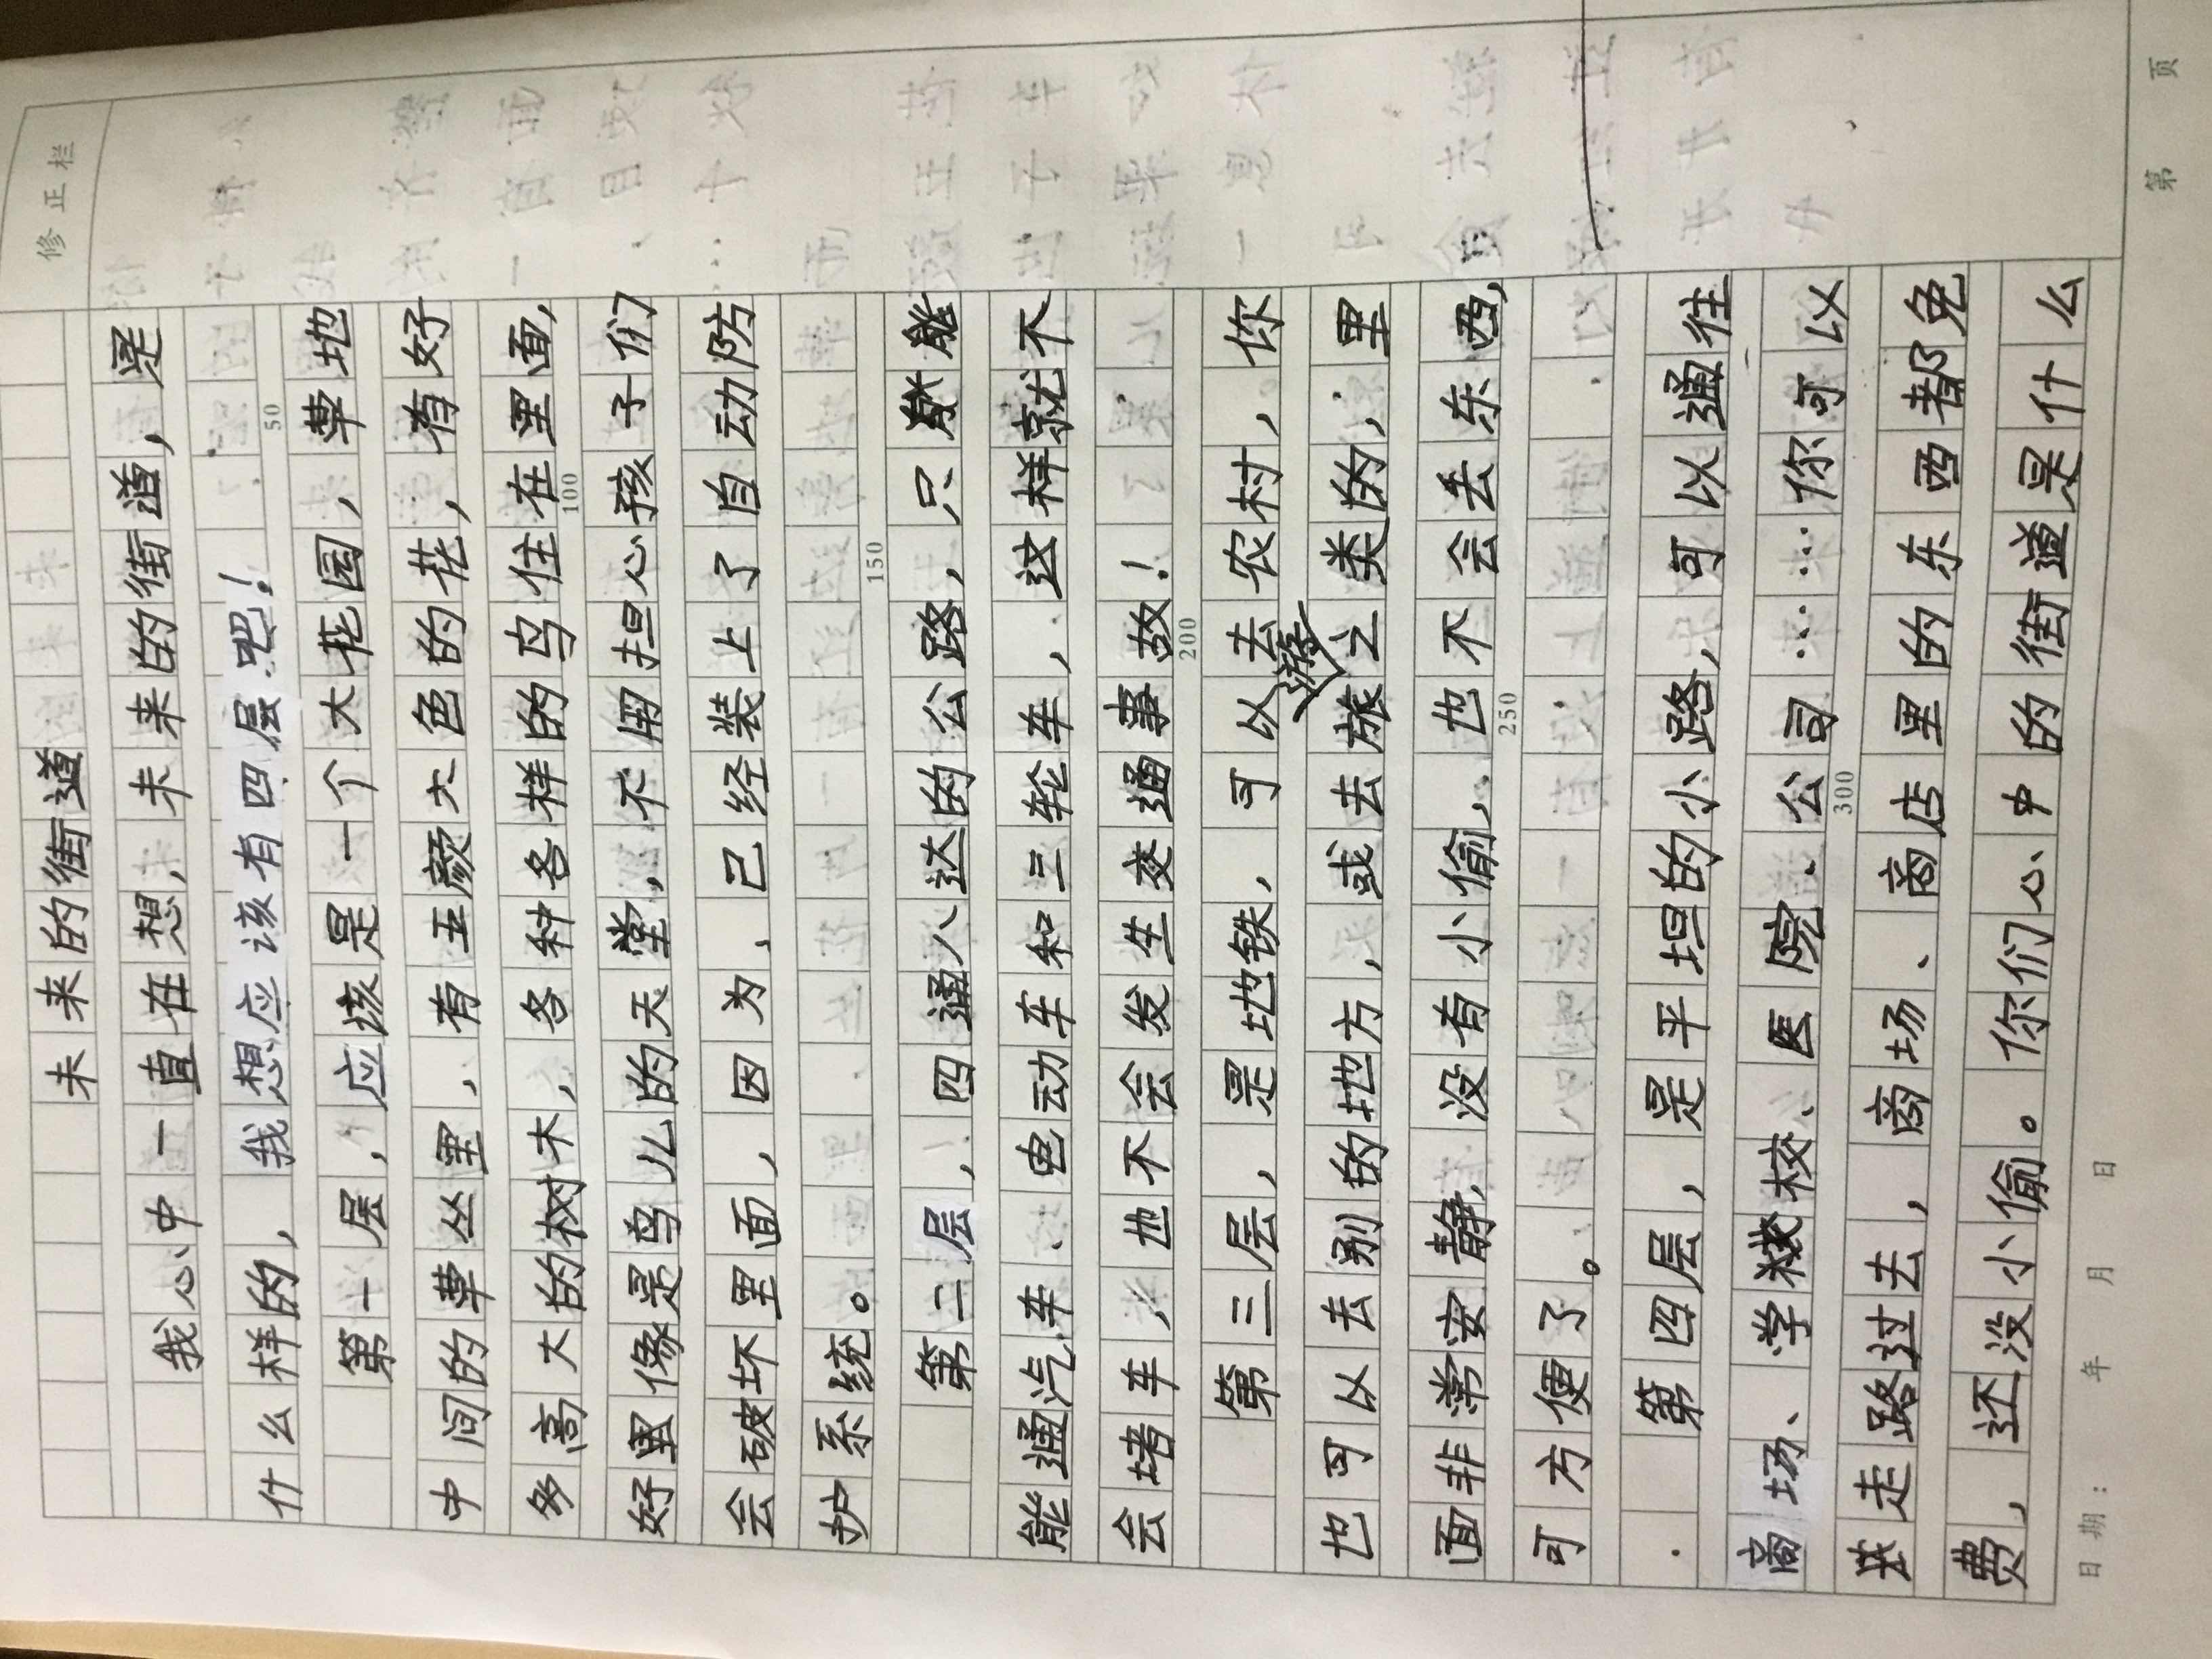 修正栏
未来的街道
我心中一直在想，未来的街道，是
什么样的，我想应该有四层吧！
50
第一层，应该是一个大花园，草地
中间的草丛里，有五颜六色的花，有好
多高大的树木，各种各样的鸟住在里面，
100
好里像是鸟儿的天堂，不用担心孩子们
会破坏里面，因为，已经装上了自动防
护系统。
150
第二层，四通八达的公路，只能
能通汽车、电动车和三轮车，这样就不
会堵车，也不会发生交通事故！
200
第三层，是地铁，可以去农村，你
也可以去别的地方，或去旅游之类的，里
面非常安静，没有小偷，也不会丢东西，
250
可方便了。
第四层，是平坦的小路，可以通往
商场、学校、医院、公司……你可以
300
走路过去，商场、商店里的东西都免
费，还没小偷。你们心中的街道是什么
日期： 年 月 日
第 页